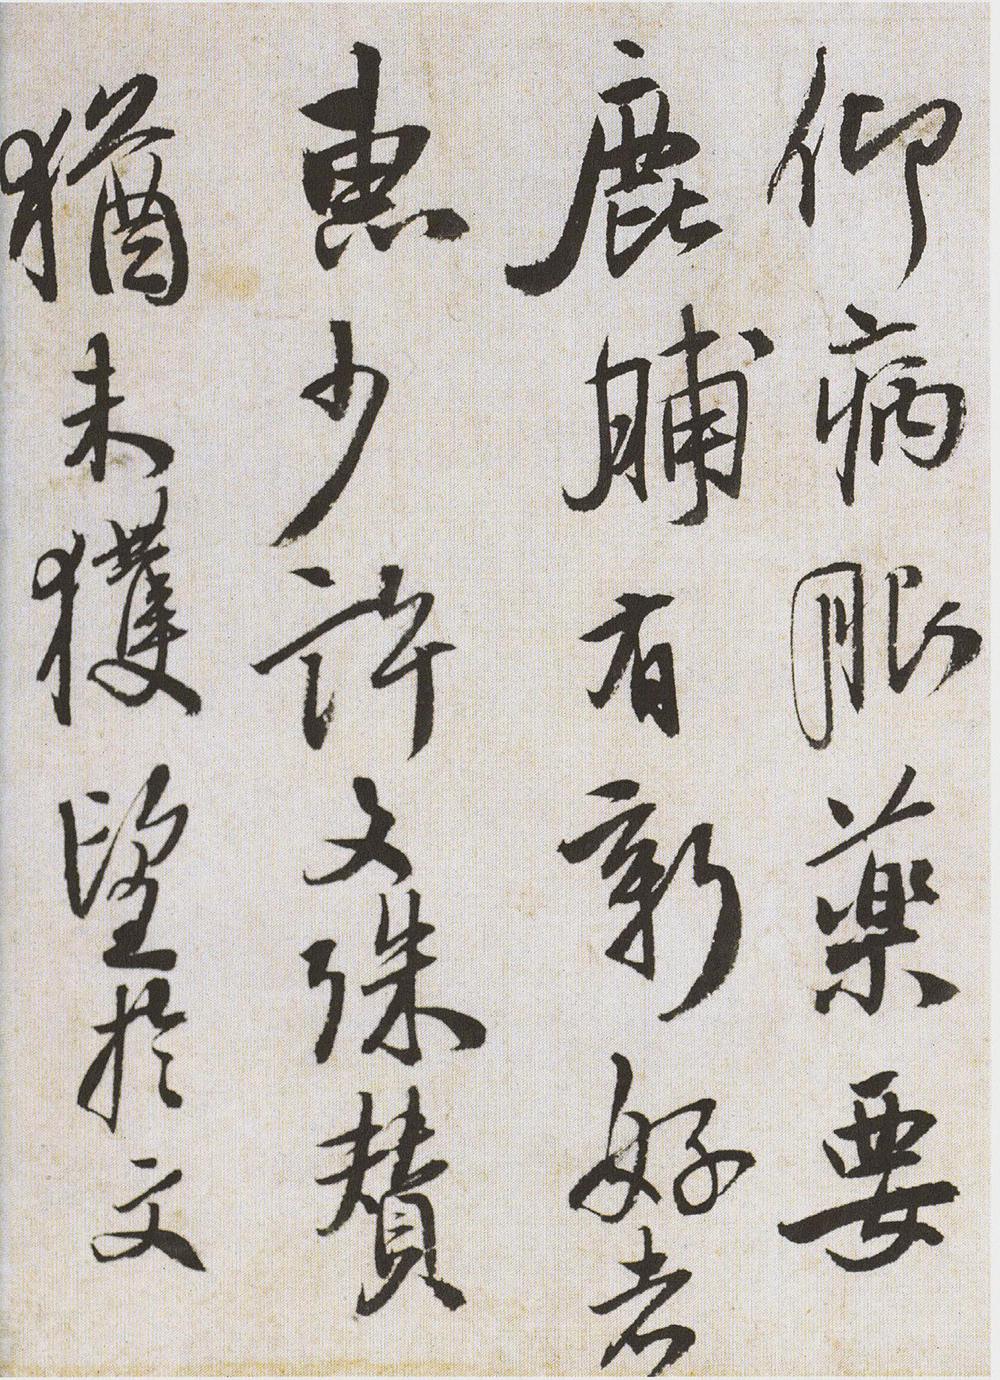 仰病服藥要
鹿脯有新好者
惠少許文殊賛
猶未獲望於文